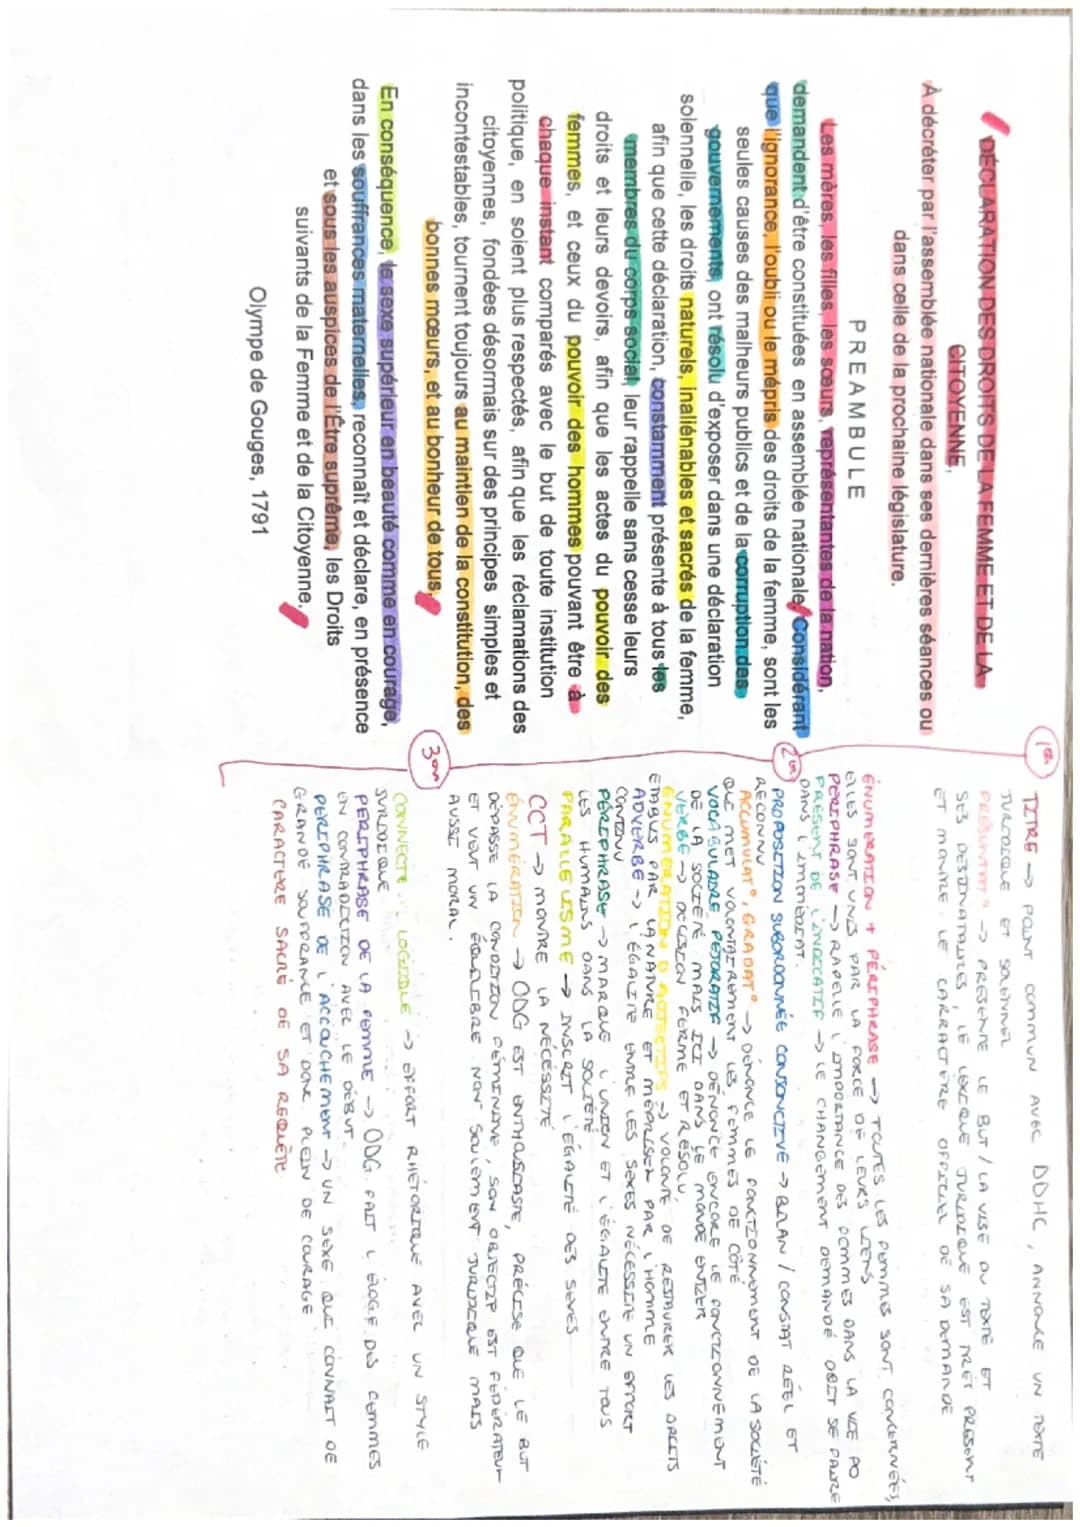 DÉCLARATION DES DROITS DE LA FEMME ET DE LA
CITOYENNE,
À décréter par l'assemblée nationale dans ses dernières séances ou
dans celle de la prochaine législature.
PREAMBULE
Les mères, les filles, les sœurs, représentantes de la nation,
demandent d'être constituées en assemblée nationale. Considérant
que l'ignorance, l'oubli ou le mépris des droits de la femme, sont les
seules causes des malheurs publics et de la corruption des
gouvernements, ont résolu d'exposer dans une déclaration
solennelle, les droits naturels, inaliénables et sacrés de la femme,
afin que cette déclaration, constamment présente à tous les
membres du corps social, leur rappelle sans cesse leurs
droits et leurs devoirs, afin que les actes du pouvoir des
femmes, et ceux du pouvoir des hommes pouvant être à
chaque instant comparés avec le but de toute institution
politique, en soient plus respectés, afin que les réclamations des
citoyennes, fondées désormais sur des principes simples et
incontestables, tournent toujours au maintien de la constitution, des
bonnes mœurs, et au bonheur de tous.
En conséquence, le sexe supérieur en beauté comme en courage,
dans les souffrances maternelles, reconnaît et déclare, en présence
et sous les auspices de l'Être suprême, les Droits
suivants de la Femme et de la Citoyenne.
Olympe de Gouges, 1791
TITRE → POINT COMMUN AVEC DDHC, ANNONCE UN TEXTE
JURIDIQUE ET SOLENNEL
→ PRESENTE LE BUT / LA VISE DU TEXTE ET
SES DESTINATAIRES, LE LEXIQUE JURIDIQUE EST TRÈT PRESENT
ET MONTRE LE CARRACTÈRE OFFICIEL DE SA DEMANDE
ÉNUMERATION + PÉRIPHRASE → TOUTES LES FEMMES SONT CONCERNÉES,
ELLES SONT UNIES PAR LA FORCE DE LEURS LIENS
PÉRIPHRASE → RAPELLE L'IMPORTANCE DES FEMMES DANS LA VIE PO
PRÉSENT DE L'INDICATIF → LE CHANGEMENT DEMANDÉ DOIT SE FAIRE
DANS L'IMMÉDIAT.
2em
PROPOSITION SUBORDONNÉE CONJONCTIVE → BILAN / CONSTAT RÉEL ET
RECONNU
ACCUMULAT°, GRADAT° → DÉNONCE LE FONCTIONNEMENT DE LA SOCIÉTÉ
QUI MET VOLONTAIREMENT LES FEMMES DE CÔTÉ
VOCABULAIRE PEJORATIF → DÉNONCE ENCORE LE FONCTIONNEMENT
DE LA SOCIÉTÉ MAIS ICI DANS LE MONDE ENTIER
VERBE → DÉCISION FERME ET RÉSOLU,
ÉNUMERATION D'ADJECTIFS → VOLONTÉ DE RESTAURER LES DROITS
ETABLIS PAR LA NATURE ET MÉPRISER PAR L'HOMME
ADVERBE → L'ÉGALITÉ ENTRE LES SEXES NÉCESSITE UN EFFORT
CONTINU
PÉRIPHRASE → MARQUE L'UNION ET L'ÉGALITÉ ENTRE TOUS
LES HUMAINS DANS LA SOCIÉTÉ
PARALLELISME → INSCRIT L'ÉGALITÉ DES SEXES
CCT → MONTRE LA NÉCESSITÉ
ÉNUMÉRATION → ODG EST ENTHOUSIASTE, PRÉCISE QUE LE BUT
DÉPASSE LA CONDITION FÉMININE, SON OBJECTIF EST FÉDÉRATEUR
ET VEUT UN ÉQUILIBRE NON SOULEMENT JURIDIQUE MAIS
AUSSI MORAL.
3em
CONNECTE LOGIQUE → EFFORT RHÉTORIQUE AVEC UN STYLE
JURIDIQUE
PERIPHRASE DE LA FEMME → ODG FAIT L'ÉLOGE DES FEMMES
EN CONTRADICTION AVEC LE DÉBUT
PERIPHRASE DE L'ACCOUCHEMENT → UN SEXE QUI CONNAIT DE
GRANDE SOUFFRANCE ET DONC PLEIN DE COURAGE
CARACTERE SACRÉ DE SA REQUÊTE